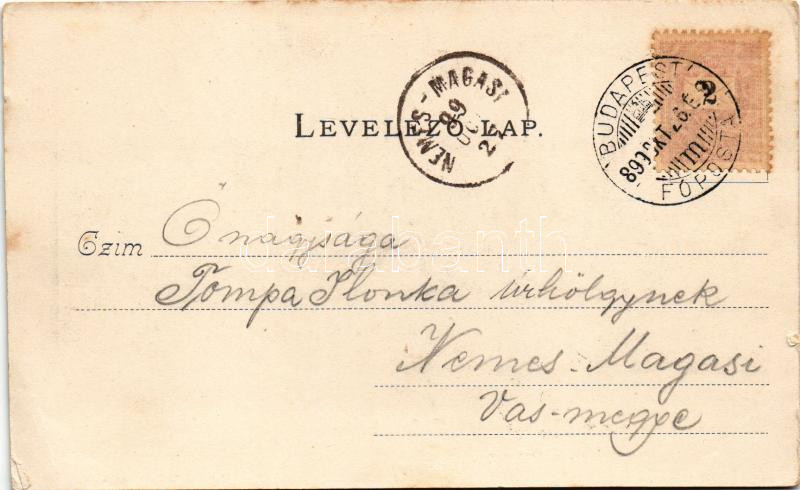 NEMES-MAGASI
99
OCT
27
BUDAPEST
2
899 OKT. 26. E.
FŐPOSTA
LEVELEZŐ-LAP.
Czim Ő nagysága
Tompa Ilonka úrhölgynek
Nemes-Magasi
Vas-megye
darabanth